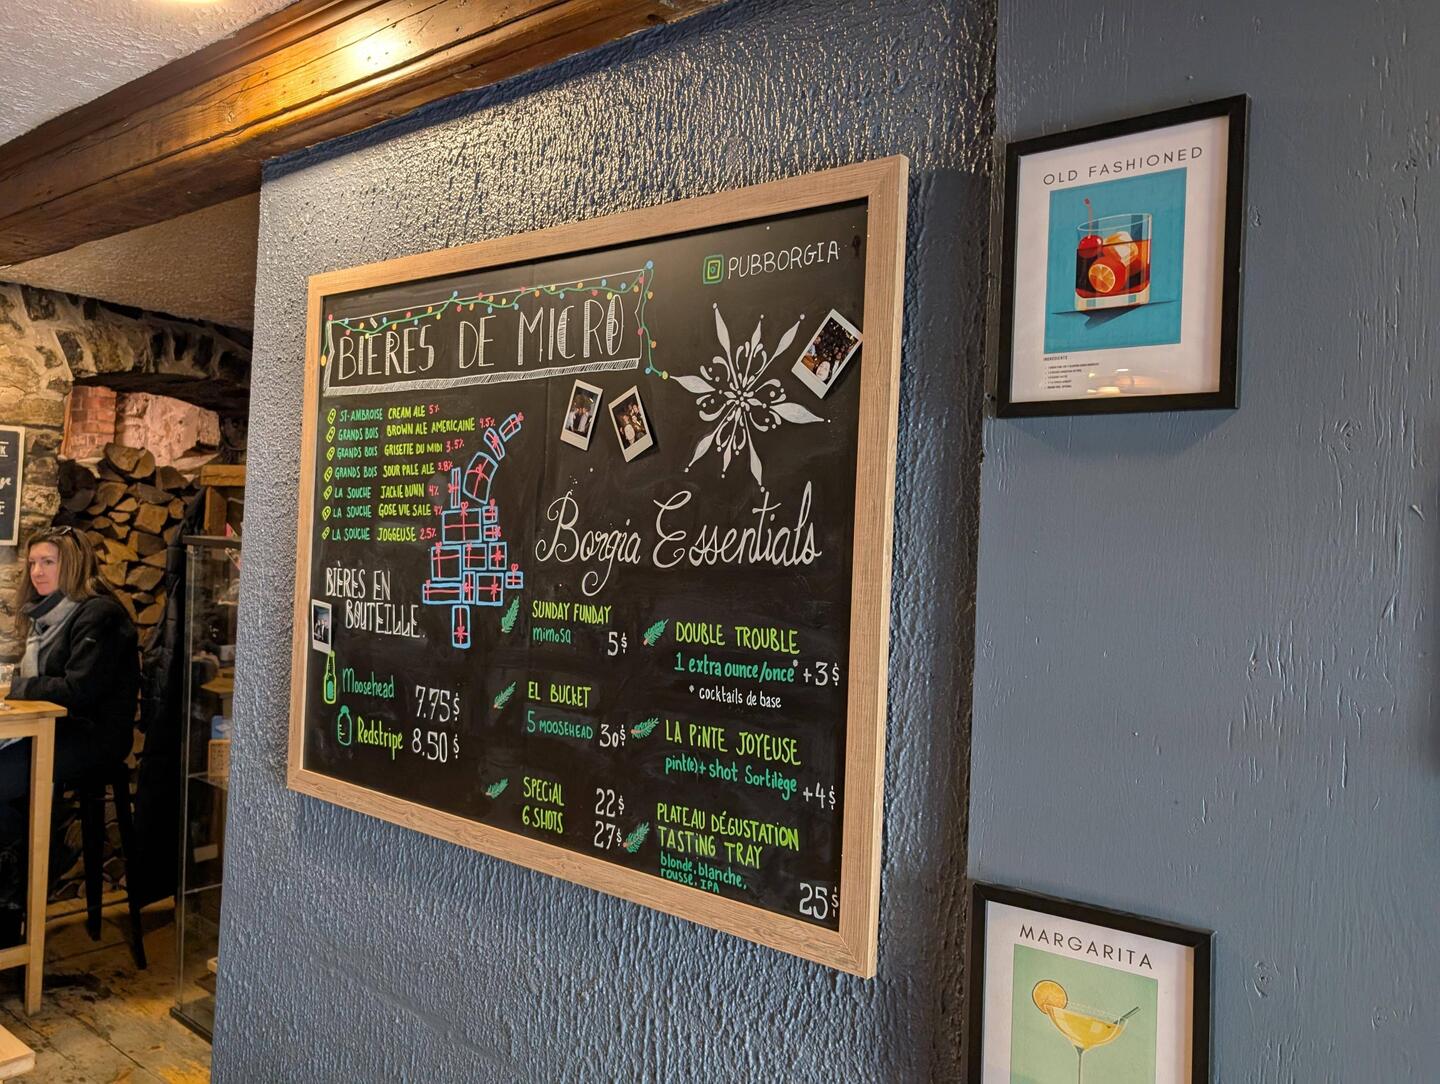 PUBBORGIA
BIÈRES DE MICRO
ST-AMBROISE CREAM ALE 5%
GRANDS BOIS BROWN ALE AMERICAINE 4.5%
GRANDS BOIS GRISETTE DU MIDI 3.5%
GRANDS BOIS SOUR PALE ALE 3.8%
LA SOUCHE JACKIE DUNN 4%
LA SOUCHE GOSE VIE SALE 4%
LA SOUCHE JOGGEUSE 2.5%
BIÈRES EN
BOUTEILLE.
Moosehead 7.75$
Redstripe 8.50$
Borgia Essentials
SUNDAY FUNDAY
mimosa 5$
EL BUCKET
5 MOOSEHEAD 30$
SPECIAL 22$
6 SHOTS 27$
DOUBLE TROUBLE
1 extra ounce/once* +3$
* cocktails de base
LA PINTE JOYEUSE
pint(e)+ shot Sortilège +4$
PLATEAU DÉGUSTATION
TASTING TRAY
blonde, blanche,
rousse, IPA
25$
OLD FASHIONED
INGREDIENTS
MARGARITA